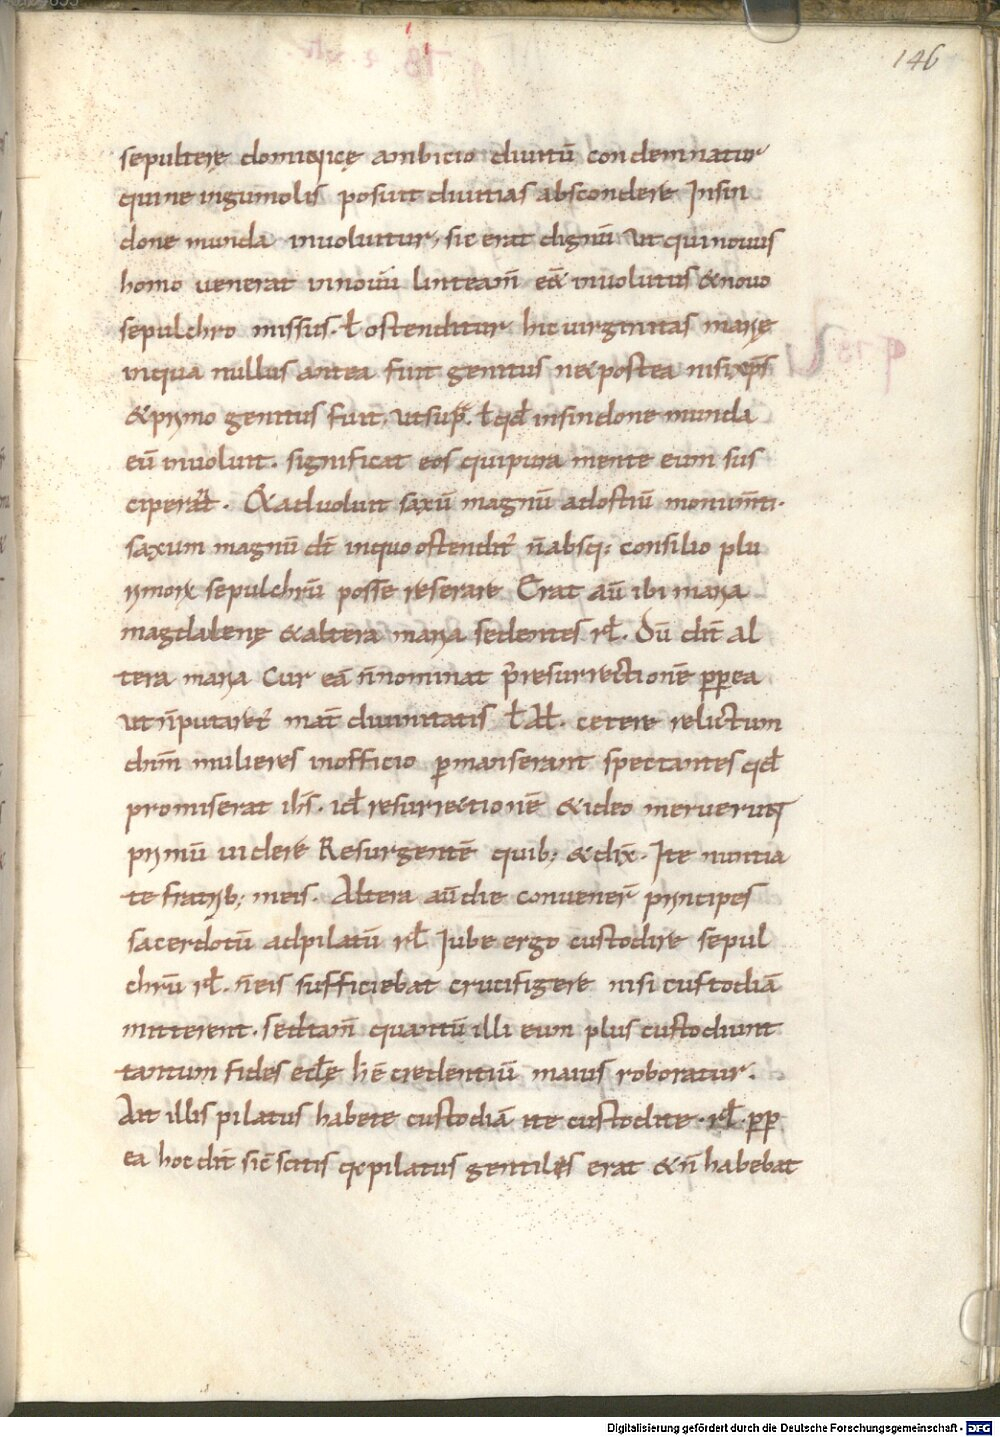 146
sepulterę dominicę ambicio diuitū condemnatur
qui ne in gumolis possunt diuitias abscondere In sin
done munda inuoluitur, sic erat dignū ut qui nouus
homo uenerat in nouū linteam̄ eē inuolutus & nouo
sepulchro missus. ł ostenditur hic uirginitas marię
in qua nullus antea fuit genitus nec postea nisi xp̄s
& primo genitus fuit, ut sup̄. ł qđ in sindone munda
eū inuoluit. significat eos qui pura mente eum sus
ciperat̄. & aduoluit saxū magnū ad ostiū monum̄ti.
saxum magnū dt̄ in quo ostendit̄ n̄ absq; consilio plu
rimorꝝ sepulchrū posse reserare Erat aū ibi maria
magdalenę & altera maria sedentes rł. Dū dit̄ al
tera maria Cur eā n̄ nominat p̄ resurrectionē ꝓpea
ut n̄ putaret̄ mat̄ diuinitatis ł ał. cetere relictum
dnm̄ mulieres in officio ꝑmanserant spectantes qđ
promiserat ihs̄. id resurrectionē & ideo meruerunt
primū uidere Resurgentē quib; & dix̄. Ite nuntia
te fratrib; meis. Altera aū die conuener̄ principes
sacerdotū ad pilatū rł Iube ergo custodire sepul
chrū rł. n̄ eis sufficiebat crucifigere nisi custodiā
mitterent. sed tam̄ quantū illi eum plus custodiunt
tantum fides ecłę h̄ ē credentiū maius roboratur.
Ait illis pilatus habete custodiā ite custodite. rł. ꝓp
ea hoc dit̄ sic̄ scitis qꝫ pilatus gentiles erat & n̄ habebat
Digitalisierung gefördert durch die Deutsche Forschungsgemeinschaft - DFG